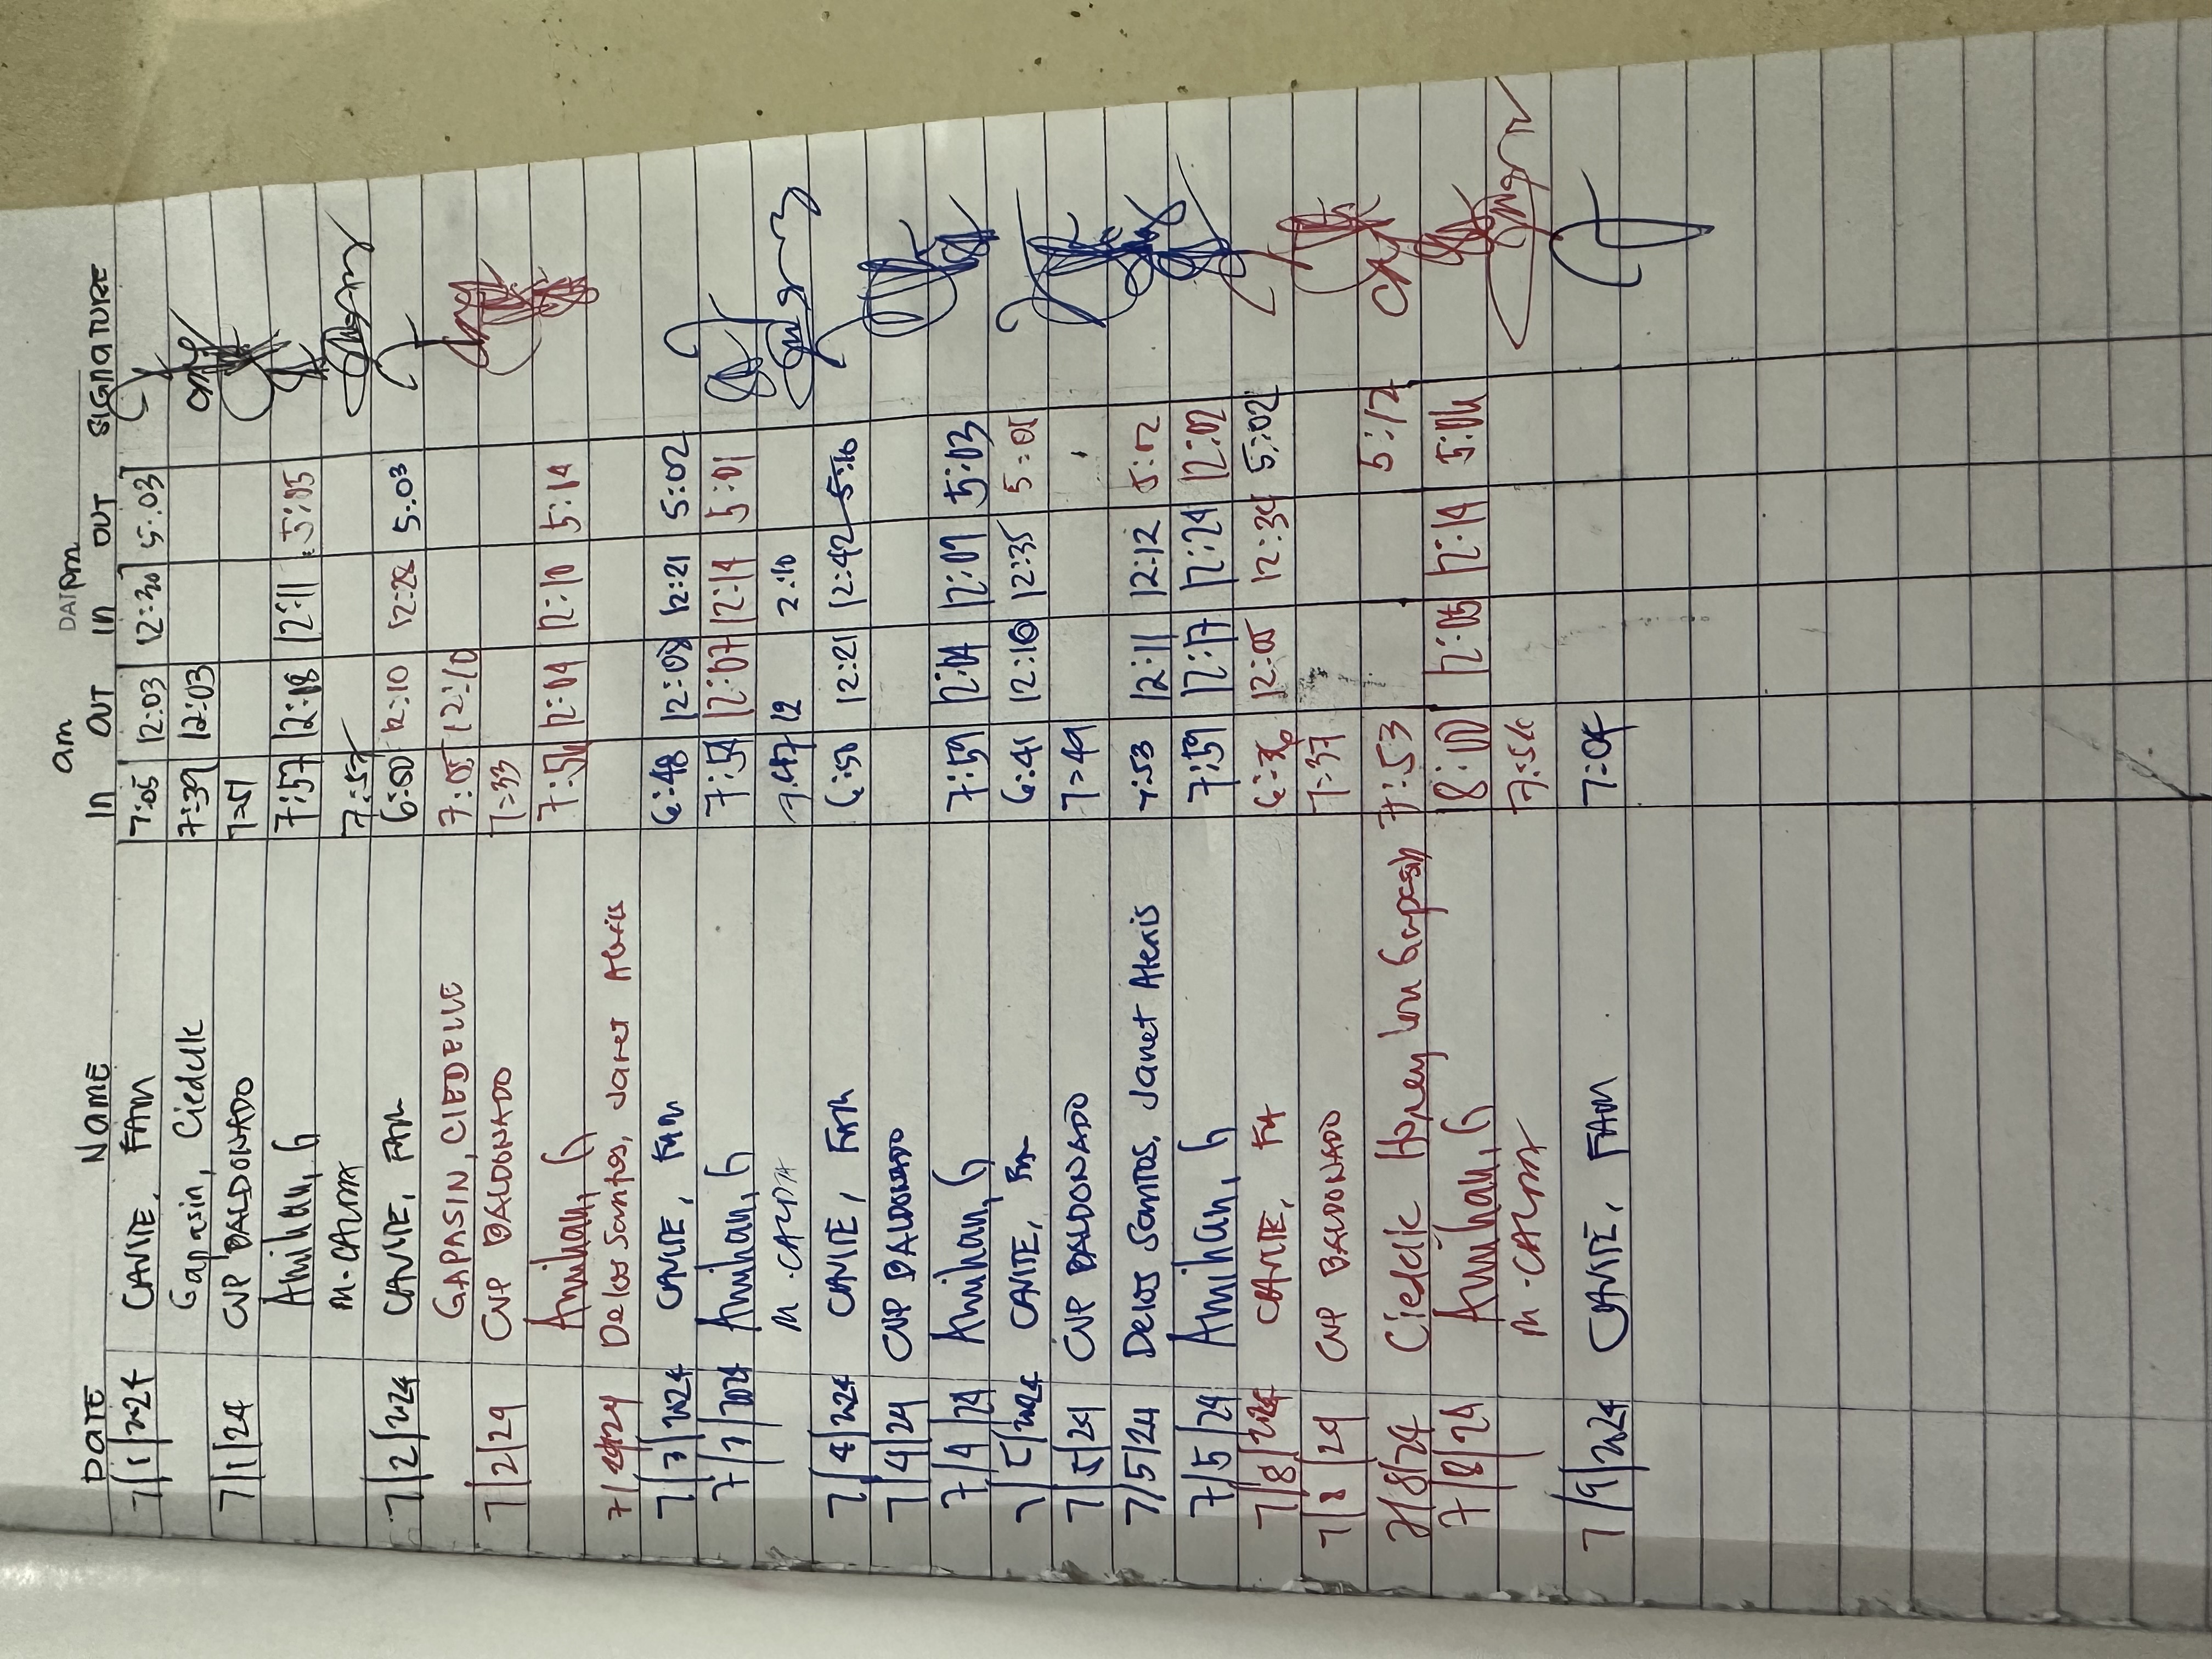 am DAI pm
DATE NAME In OUT In OUT SIGNATURE
7/1/2024 CAVITE, FAM 7:05 12:03 12:30 5:03
Gapasin, Ciedelle 7:39 12:03
7/1/24 CVP BALDONADO 7:51
Amihan, G 7:57 12:18 12:11 5:05
M. CALMA 7:57
7/2/2024 CAVITE, FAM 6:50 12:10 12:28 5:03
GAPASIN, CIEDELLE 7:05 12:10
7/2/24 CVP BALDONADO 7:33
Amihan, G 7:56 12:04 12:10 5:14
7/ /24 Delos Santos, Janet Alexis
7/3/2024 CAVITE, FAM 6:48 12:08 12:21 5:02
7/3/2024 Amihan, G 7:54 12:07 12:14 5:01
M. CALMA 7:47 12 2:10
7/4/2024 CAVITE, FAM 6:50 12:21 12:42 5:16
7/4/24 CVP BALDONADO
7/4/24 Amihan, G 7:59 12:04 12:09 5:03
7/5/2024 CAVITE, FAM 6:41 12:10 12:35 5:01
7/5/24 CVP BALDONADO 7:49
7/5/24 Delos Santos, Janet Alexis 7:53 12:11 12:12 5:12
7/5/24 Amihan, G 7:59 12:17 12:24 12:02
7/8/2024 CAVITE, FA 6:36 12:05 12:34 5:02
7/8/24 CVP BALDONADO 7:37
7/8/24 Ciedelle Honey Lou Gapasin 7:53 5:12
7/8/24 Amihan, G 8:00 12:05 12:14 5:04
M. CALMA 7:56
7/9/2024 CAVITE, FAM 7:04